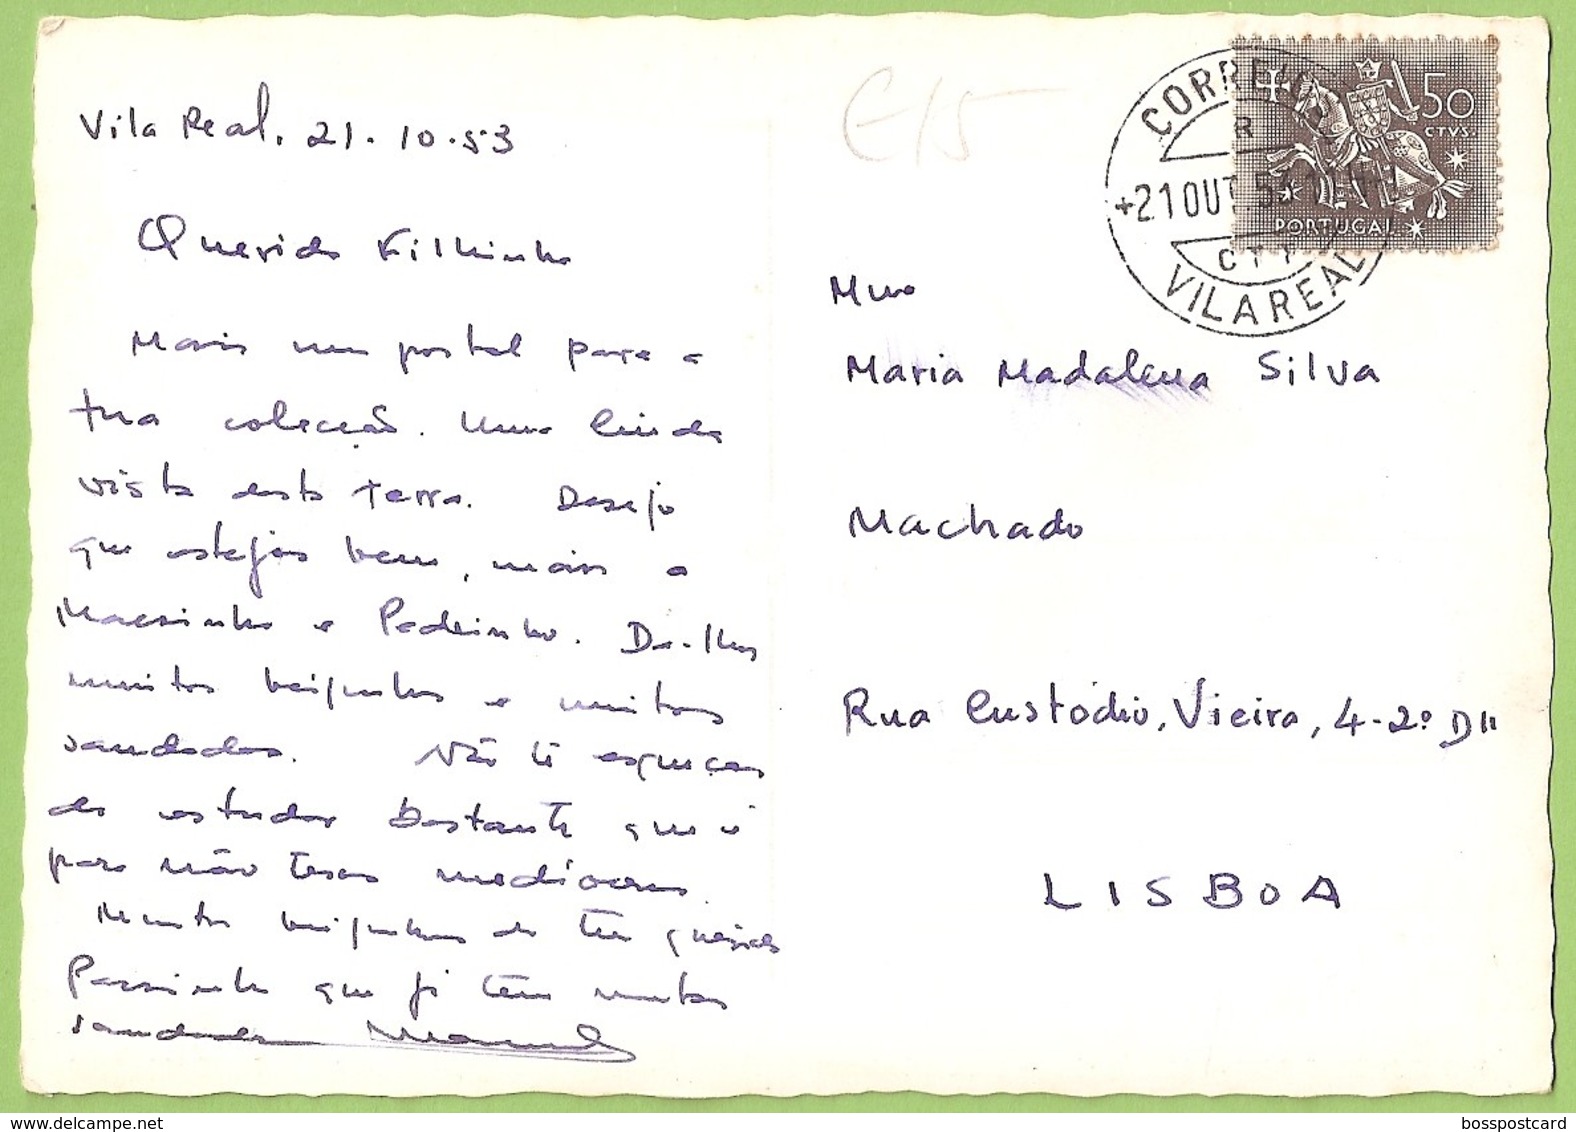 Vila Real, 21-10-53
Querida Filhinha
Mais um postal para a
tua colecção. Uma linda
vista desta terra. Desejo
que estejas bem, mais a
Mãesinha e Pedrinho. Dá-lhes
muitos beijinhos e muitas
saudades. Não te esqueças
de estudar bastante que é
para não teres medíocres.
Muitos beijinhos do teu querido
Paisinho que já tem muitas
saudades Manuel
€15
CORREIOS
R
+21 OUT. 53
CTT
VILA REAL
50
CTVS.
PORTUGAL
Mna
Maria Madalena Silva
Machado
Rua Custódio, Vieira, 4-2º D
LISBOA
bosspostcard